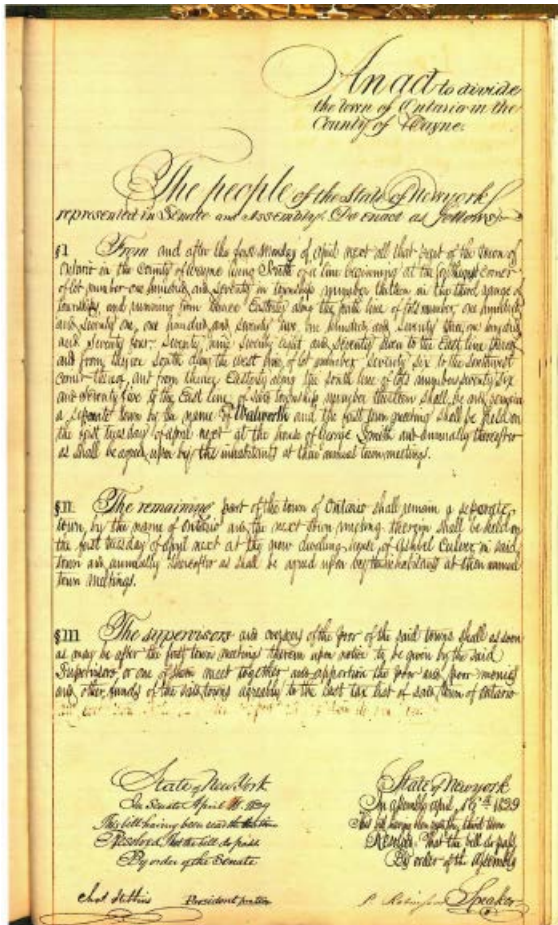 An act to divide
the town of Ontario in the
County of Wayne.
The people of the State of New york
represented in Senate and Assembly, Do enact as follows
§I From and after the first Monday of April next all that part of the town of
Ontario in the County of Wayne lying South of a line beginning at the corner
of lot number one hundred and seventy in township number thirteen in the third range of
townships, and running from thence Easterly along the south line of lots number, one hundred
and seventy one, one hundred and seventy two, one hundred and seventy three, one hundred
and seventy four, seventy nine seventy eight, and seventy seven to the East line thereof
and from thence south along the west line of lot number seventy six to the southwest
corner thereof, and from thence Easterly along the south line of lots number seventy six
and seventy five to the East line of said township number thirteen shall be and remain
a separate town by the name of Walworth and the first town meeting shall be held on
the first tuesday of april next at the house of George Smith and annually thereafter
as shall be agreed upon by the inhabitants at their annual town meetings.
§II. The remaining part of the town of Ontario shall remain a separate
town, by the name of Ontario and the next town meeting therein shall be held on
the first tuesday of April next at the now dwelling house of Ashbel Culver in said
town and annually thereafter as shall be agreed upon by the inhabitants at their annual
town meetings.
§III The supervisors and overseers of the poor of the said towns shall as soon
as may be after the first town meetings therein upon notice to be given by the said
Supervisors or one of them meet together and apportion the poor and poor monies
and other funds of the said towns agreeably to the last tax list of said town of Ontario
State of New York
In Senate April 1829
This bill having been read the third time
Resolved, That the bill do pass
By order of the Senate
President protem
State of New york
In assembly april, 16th 1829
This bill having been read the third time
Resolved, That the bill do pass
By order of the Assembly
P. Robinson Speaker